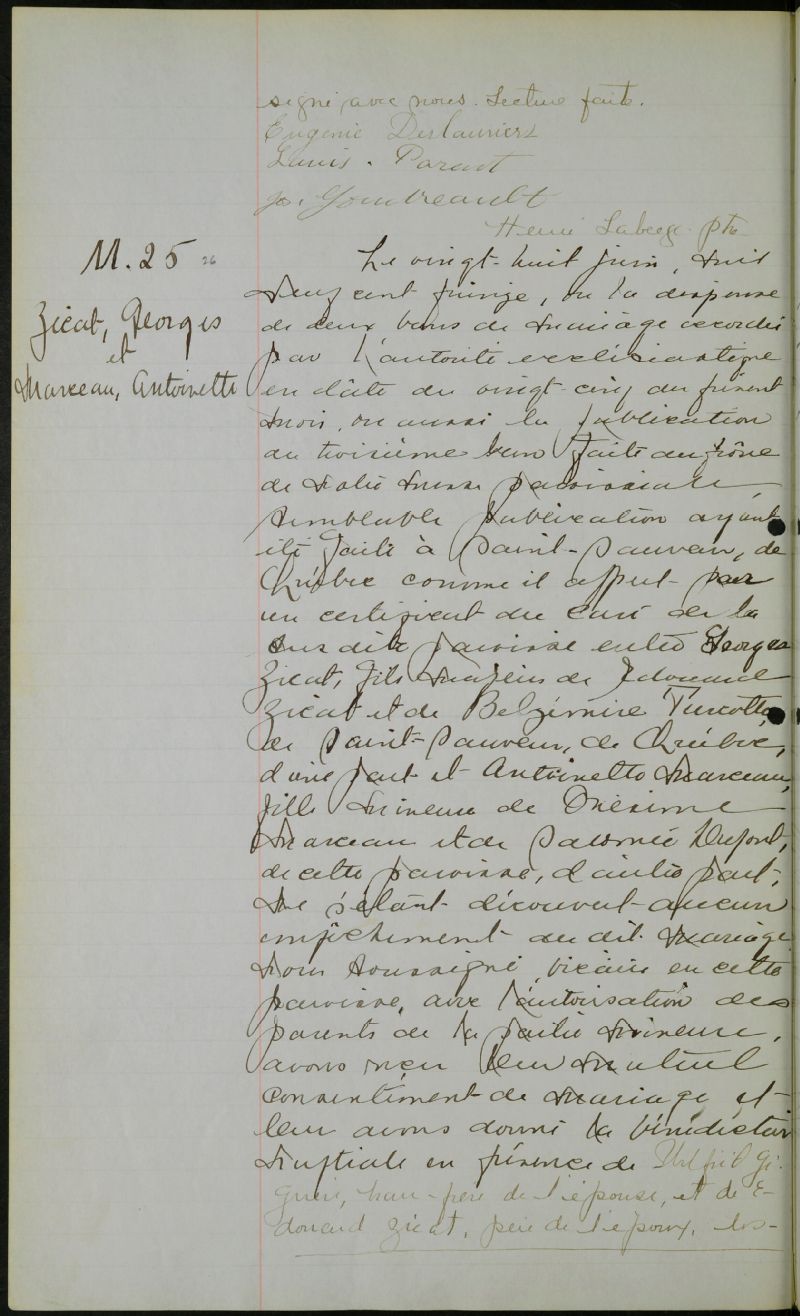 signé avec nous. Lecture faite.
Eugenie Deslauriers
Louis. Parent
Jos. Gombreault
Henri Laberge ptre
M. 25 26
Zicat, Georges
et
Marceau, Antoinette
Le vingt-huit juin, mil
neuf cent quinze, vu la dispense
de deux bans de mariage accordée
par l'autorité ecclésiastique
en date du vingt-cinq du présent
mois, vu aussi la publication
du troisième ban faite au prône
de notre messe paroissiale,
semblable publication ayant
été faite à Saint-Sauveur, de
Québec comme il appert par
un certificat du curé de la
sus dite paroisse entre Georges
Zicat, fils majeur de Edouard
Zicat et de Belzémire Turcotte
de Saint-Sauveur, de Québec,
d'une part et Antoinette Marceau,
fille mineure de Onésime
Marceau et de Salomée Dupont,
de cette paroisse, d'autre part;
Ne s'étant découvert aucun
empêchement au dit mariage
Nous soussigné, vicaire en cette
paroisse, avec l'autorisation des
parents de la partie mineure,
avons reçu leur mutuel
consentement de mariage et
leur avons donné la bénédiction
nuptiale en présence de Wilfrid Gi-
guère, beau-frère de l'épouse, et de E-
douard Zicat, père de l'époux, les-